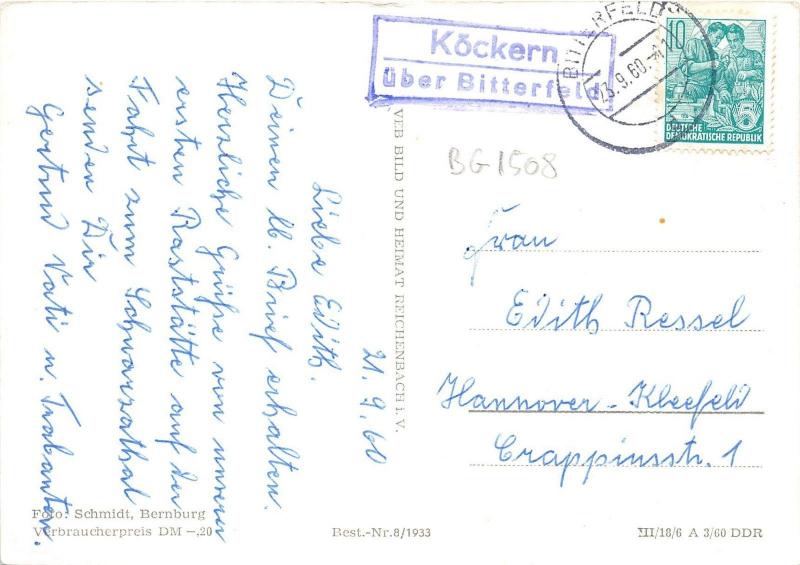 Köckern
über Bitterfeld
BITTERFELD
23.9.60.
10
DEUTSCHE
DEMOKRATISCHE REPUBLIK
BG1508
21.9.60
Liebe Edith.
Deinen lb. Brief erhalten.
Herzliche Grüße von unserer
ersten Raststätte auf der
Fahrt zum Schwarzathal
senden Dir
Gertrud Vati u. Trabanten.
VEB BILD UND HEIMAT REICHENBACH i. V.
Frau
Edith Ressel
Hannover-Kleefeld
Crappiusstr. 1
Foto: Schmidt, Bernburg
Verbraucherpreis DM -,20
Best.-Nr. 8/1933
III/18/6 A 3/60 DDR